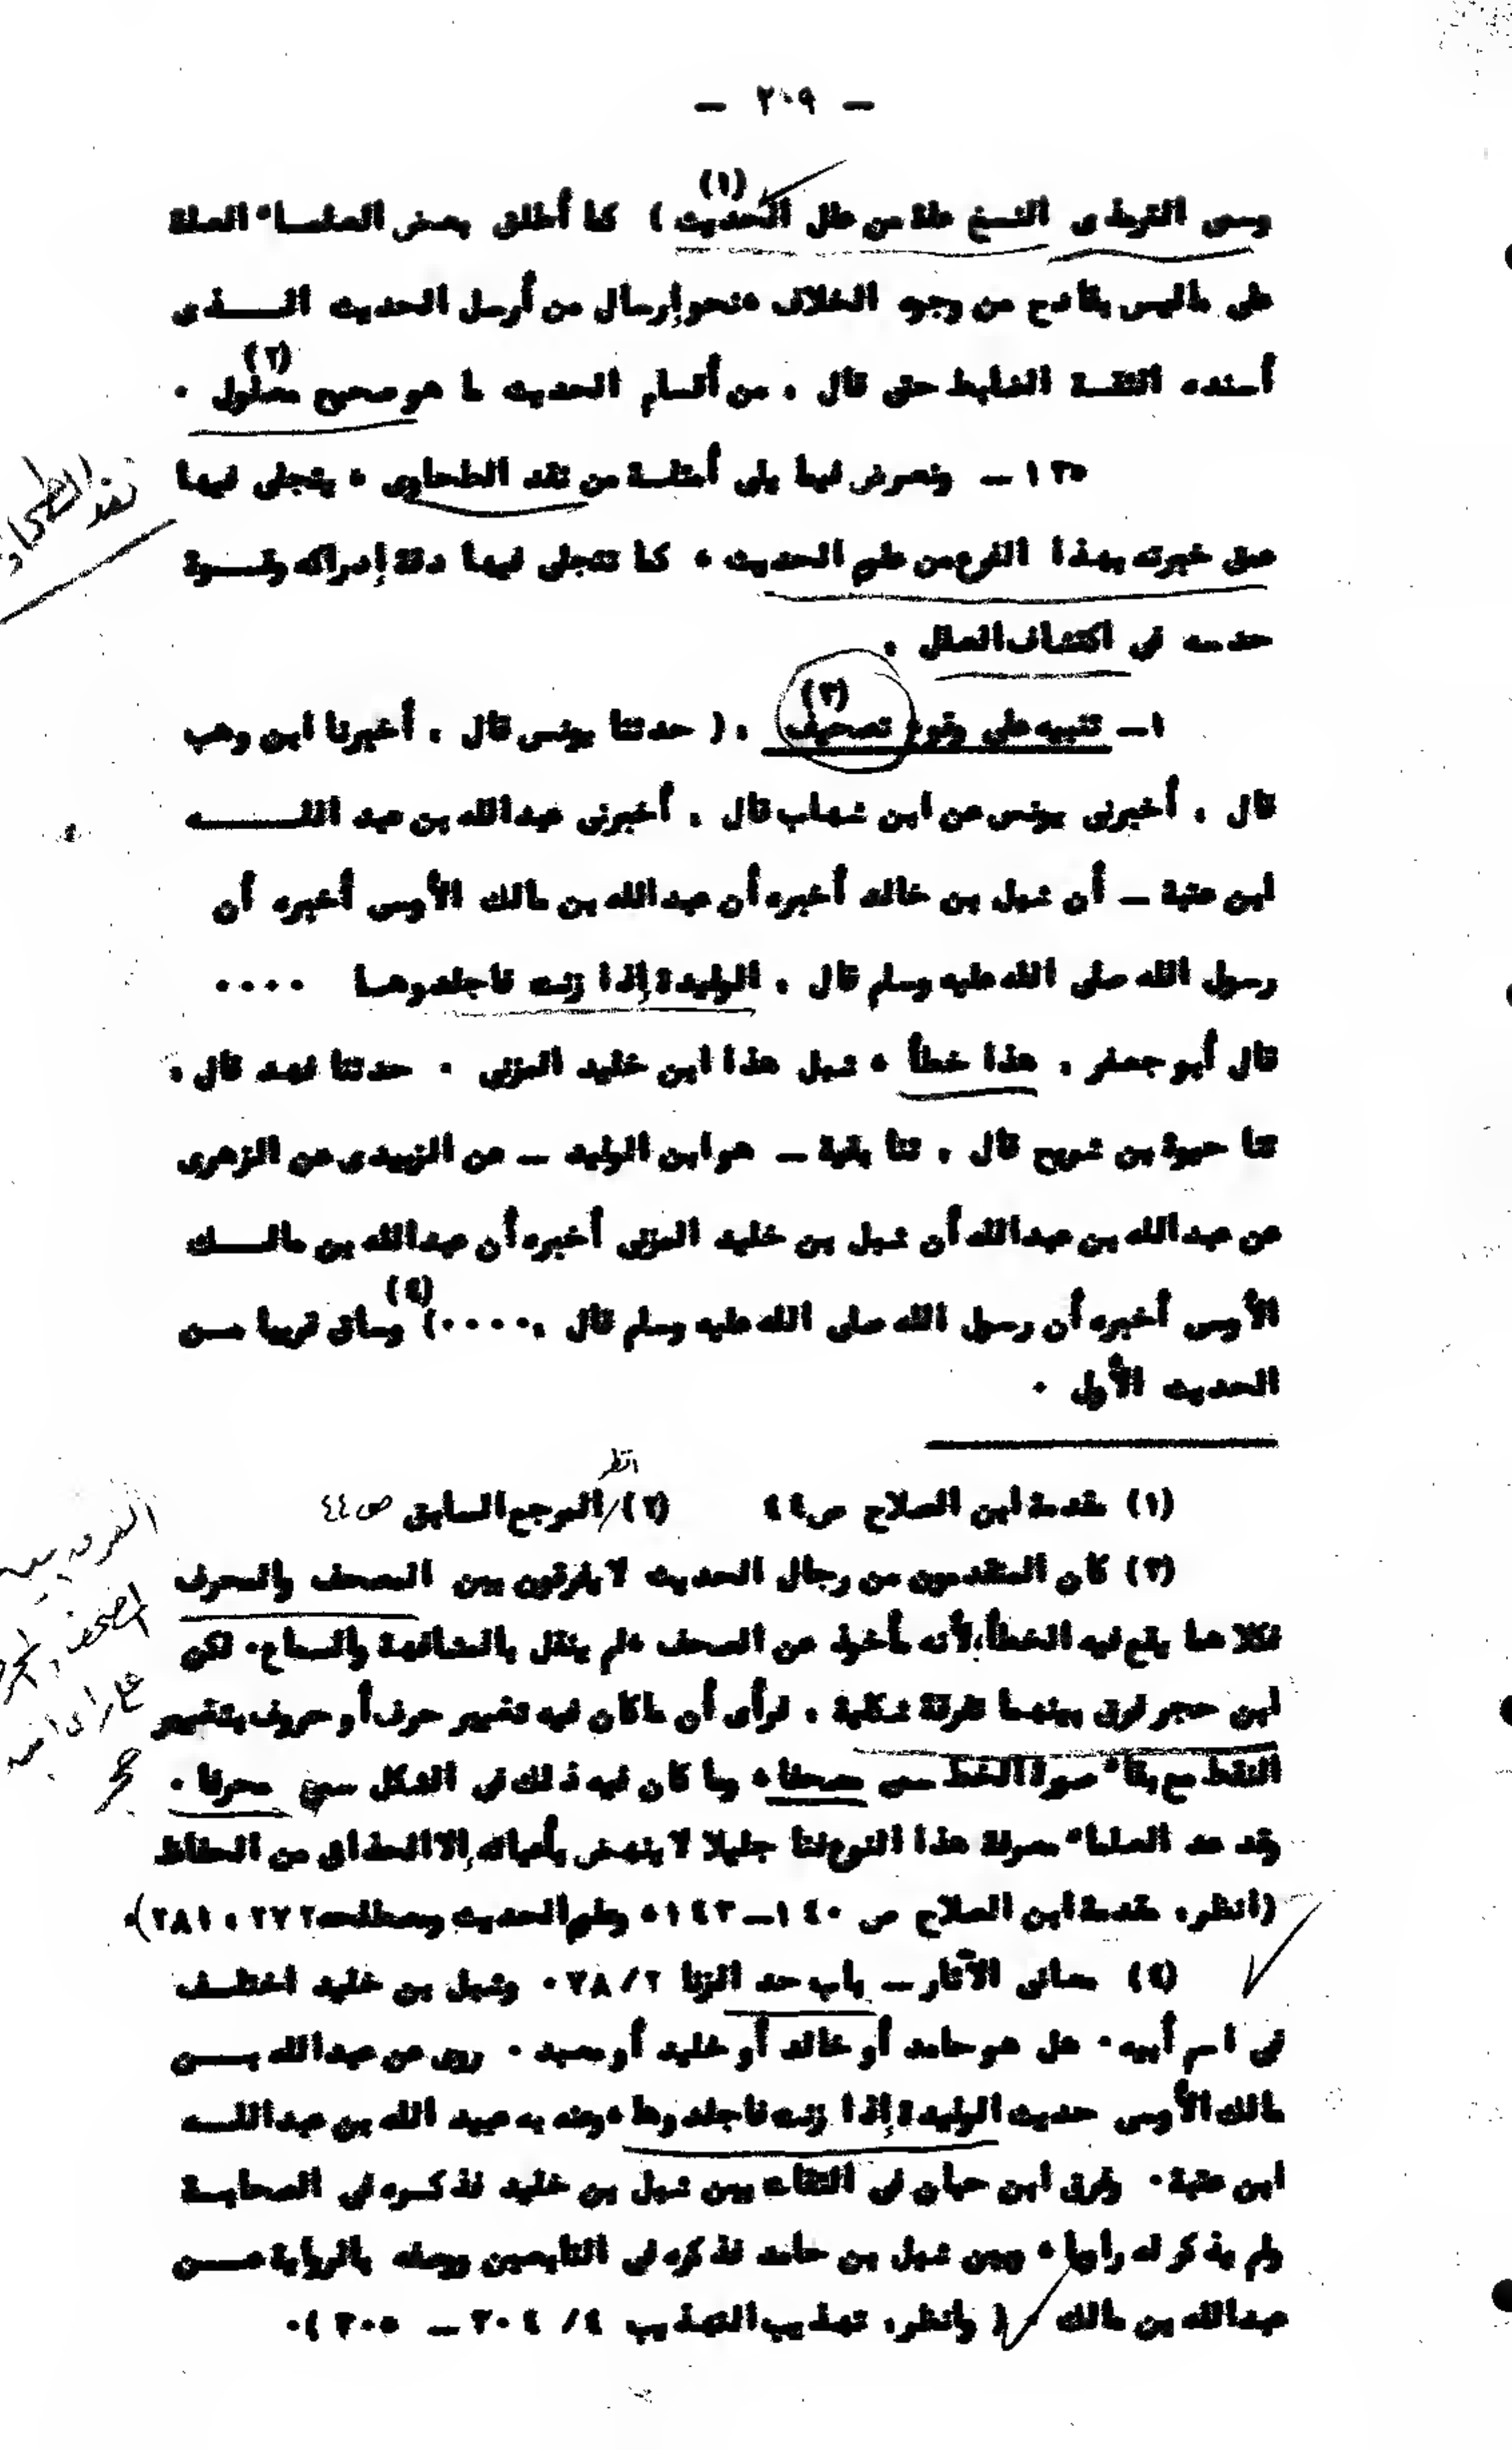 — ٢٠٩ —
وسمى الترمذى النسخ علة من علل الحديث ) (١) كما أطلق بعض العلمــاء العلة
على ماليس بقادح من وجوه الخلاف ، نحو إرسال من أرسل الحديث الــــذى
أسنده الثقــة الضابط حتى قال : من أقسام الحديث ما هو صحيح معلول (٢) ٠
١٢٥ — ونعرض فيما يلى أمثلــة من نقد الطحاوى ، يتجلى فيها
عمق خبرته بهذا الفرع من علوم الحديث ، كما تتجلى فيها دقة إدراكه وقــوة
حدسه فى اكتشاف العلل ٠
١— تنبيه على وقوع تصحيف (٣) : ( حدثنا يونس قال : أخبرنا ابن وهب
قال : أخبرنى يونس عن ابن شهاب قال : أخبرنى عبدالله بن عبد اللـــــه
ابن عتبة — أن شبل بن خالد أخبره أن عبدالله بن مالك الأوسى أخبره أن
رسول الله صلى الله عليه وسلم قال : الوليدة إذا زنت فاجلدوهــا ٠٠٠٠
قال أبو جعفر : هذا خطأ ، شبل هذا ابن خليد المزنى ٠ حدثنا فهد قال :
ثنا حيوة بن شريح قال : ثنا بقية — هو ابن الوليد — عن الزبيدى عن الزهرى
عن عبدالله بن عبدالله أن شبل بن خليد المزنى أخبره أن عبدالله بن مالــك
الأوسى أخبره أن رسول الله صلى الله عليه وسلم قال :٠٠٠٠) (٤) وساق قريبا مــن
الحديث الأول ٠
(١) مقدمة ابن الصلاح ص ٤٤ (٢) انظر المرجع السابق ص ٤٤
(٣) كان المتقدمون من رجال الحديث لا يفرقون بين المصحف والمحرف
فكلاهما يقع فيه الخطأ، لأنه مأخوذ عن الصحف ولم ينقل بالمشافهة والسماع٠ لكن
ابن حجر فرق بينهما تفرقة شكلية ، فرأى أن ماكان فيه تغيير حرف أو حروف بتغيير
النقط مع بقاء صورة الخط سمى مصحفا، وما كان فيه ذلك فى الشكل سمى محرفا ٠
وقد عد العلماء معرفة هذا النوع فنا جليلا لا ينهض بأعبائه إلا الحذاق من الحفاظ
(انظر: مقدمة ابن الصلاح ص ١٤٠—١٤٣، وعلوم الحديث ومصطلحه ٢٧٢ ، ٢٨١)٠
(٤) معانى الآثار — باب حد الزنا ٢/ ٧٨ ٠ وشبل بن خليد اختلــف
فى اسم أبيه ٠ هل هو حامد أو خالد أو خليد أو معبد ٠ روى عن عبدالله بــــن
مالك الأوسى حديث الوليدة إذا زنت فاجلدوها ، وعنه به عبيد الله بن عبداللــه
ابن عتبة ٠ وفرق ابن حبان فى الثقات بين شبل بن خليد فذكــره فى الصحابــة
ولم يذكر له راويا ، وبين شبل بن حامد فذكره فى التابعين ووصفه بالرواية عــــن
عبدالله بن مالك ٠ ( وانظر: تهذيب التهذيب ٤/ ٣٠٤ — ٣٠٥ )٠
نقد الطحاوى